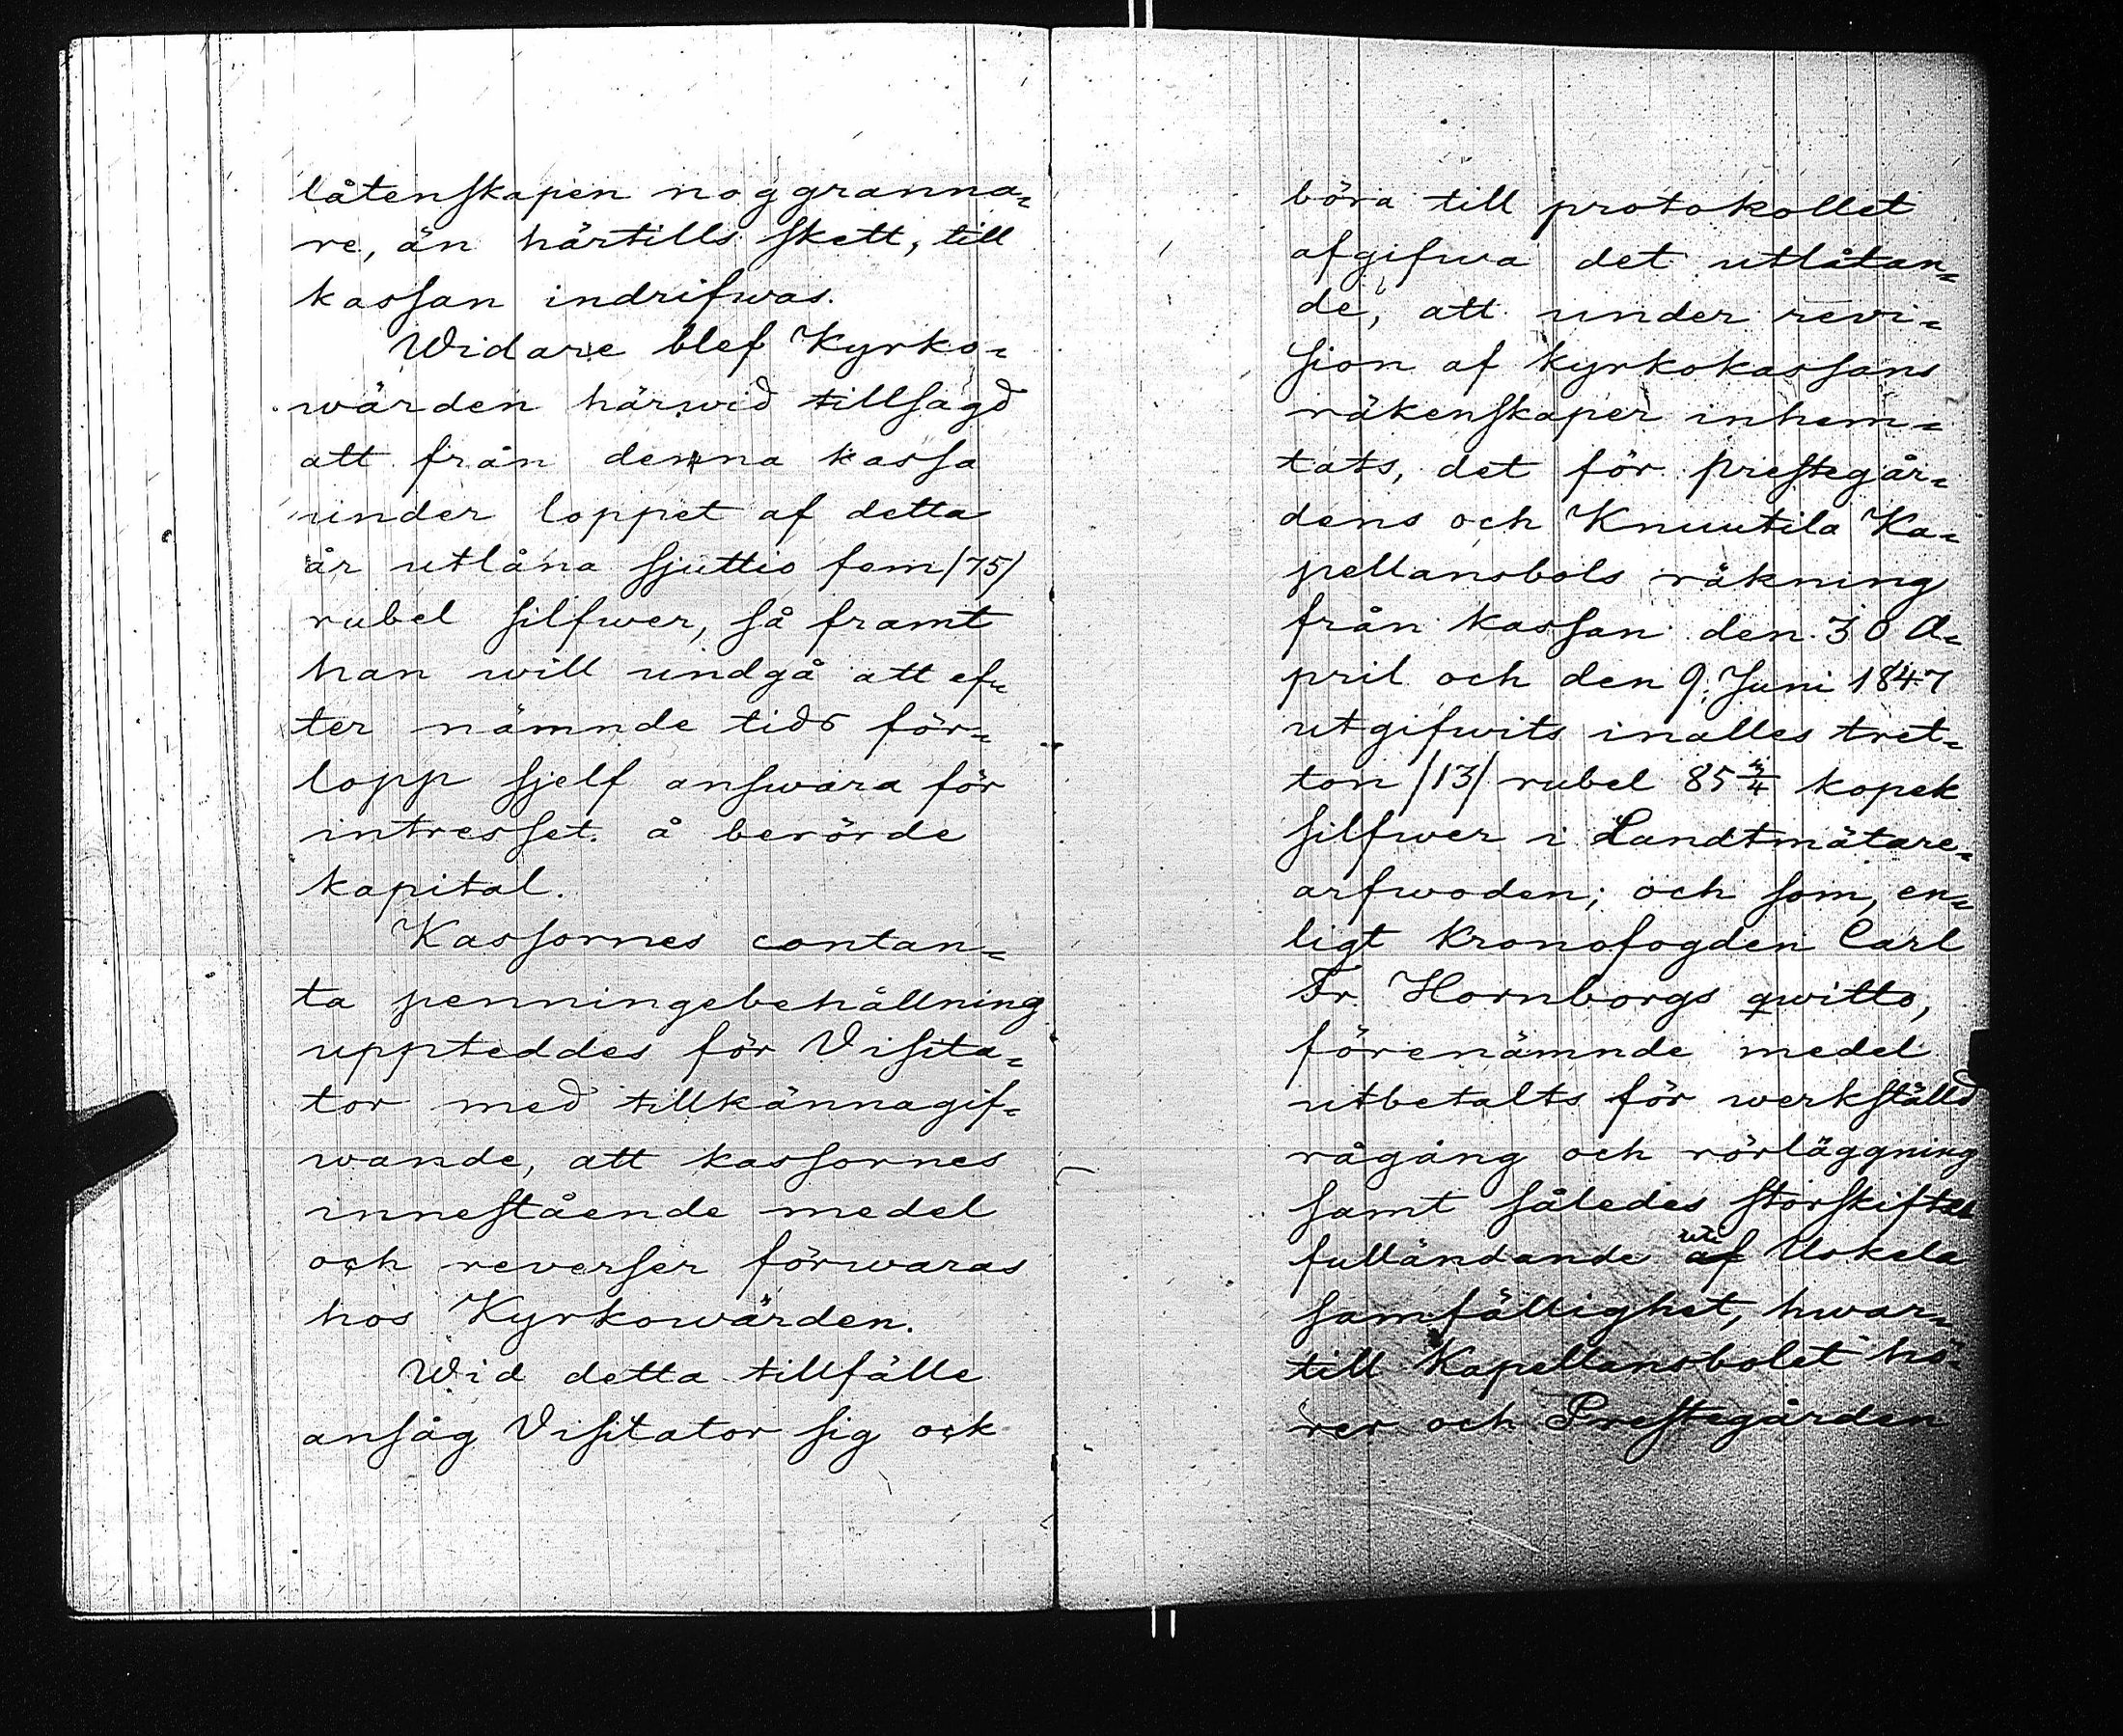 låtenskapen noggranna=
re, än härtills skett, till
kassan indrifwas.
Widare blef Kyrko=
wärden härwid tillsagd
att från denna kassa
under loppet af detta
år utlåna sjuttio fem /75/
rubel silfwer, så framt
han will undgå att ef=
ter nämnde tids för=
lopp sjelf answara för
intresset å berörde
kapital.
Kassornes contan=
ta penningebehållning
uppteddes för Visita=
tor med tillkännagif=
wande, att kassornes
innestående medel
och reverser förwaras
hos Kyrkowärden.
Wid detta tillfälle
ansåg Visitator sig ock
böra till protokollet
afgifwa det utlåtan=
de, att under revi=
sion af kyrkokassans
räkenskaper inhem=
tats, det för prestegår=
dens och Knuutila Ka=
pellansbols räkning
från kassan den 30 A=
pril och den 9 Juni 1847
utgifwits inalles tret=
ton /13/ rubel 85 3/4 kopek
silfwer i Landtmätare=
arfwoden; och som, en=
ligt Kronofogden Carl
Fr. Hornborgs qwitto,
förenämnde medel
utbetalts för werkställd
rågång och rörläggning
samt således storskiftes
fulländande uti af Uskela
samfällighet, hwar=
till Kapellansbolet hö=
rer och Prestegården